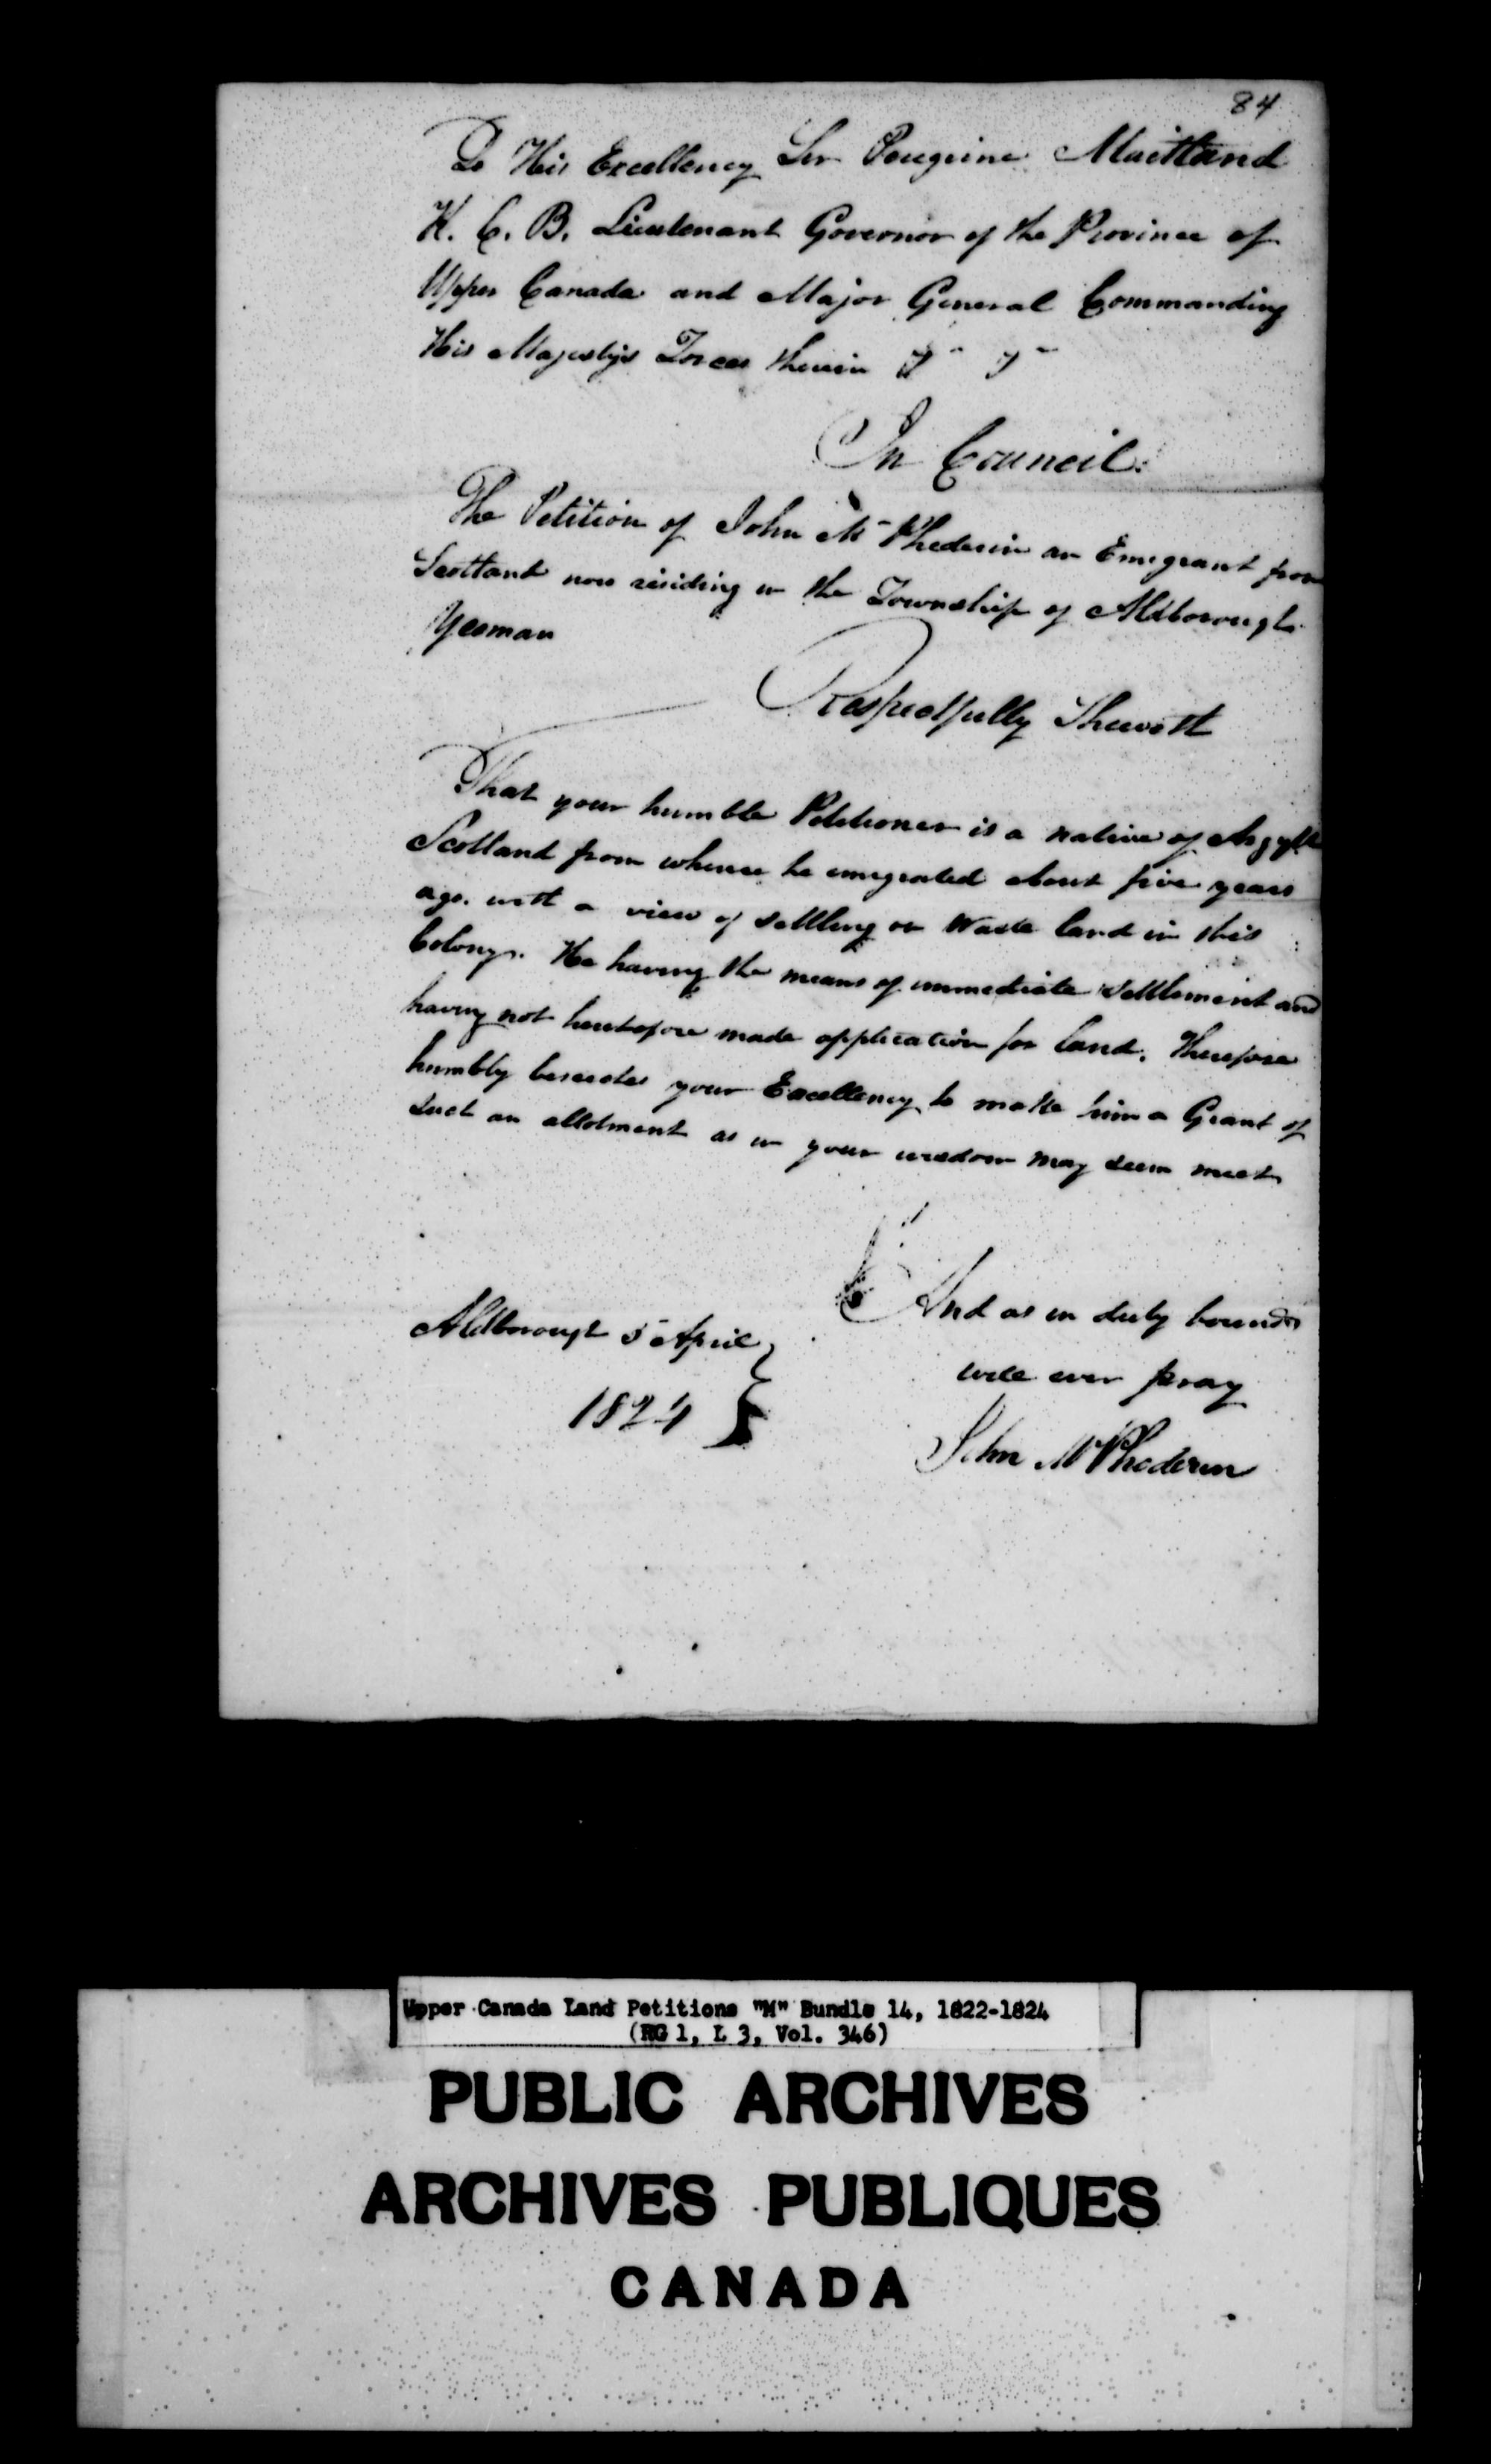 84
To His Excellency Sir Peregrine Maitland
K. C. B. Lieutenant Governor of the Province of
Upper Canada and Major General Commanding
His Majestys Forces therein &c &c
In Council.
The Petition of John Mc Phederin an Emigrant from
Scotland now residing in the Township of Aldborough
Yeoman
Respectfully Sheweth
That your humble Petitioner is a native of Argyll
Scotland from whence he emigrated about five years
ago. with a view of settling on waste land in this
Colony. He having the means of immediate settlement and
having not heretofore made application for land. Therefore
humbly beseeches your Excellency to make him a Grant of
such an allotment as in your wisdom may seem meet
And as in duty bound
will ever pray
Aldborough 5 April
1824
John McPhederin
Upper Canada Land Petitions "M" Bundle 14, 1822-1824
(RG 1, L 3, Vol. 346)
PUBLIC ARCHIVES
ARCHIVES PUBLIQUES
CANADA